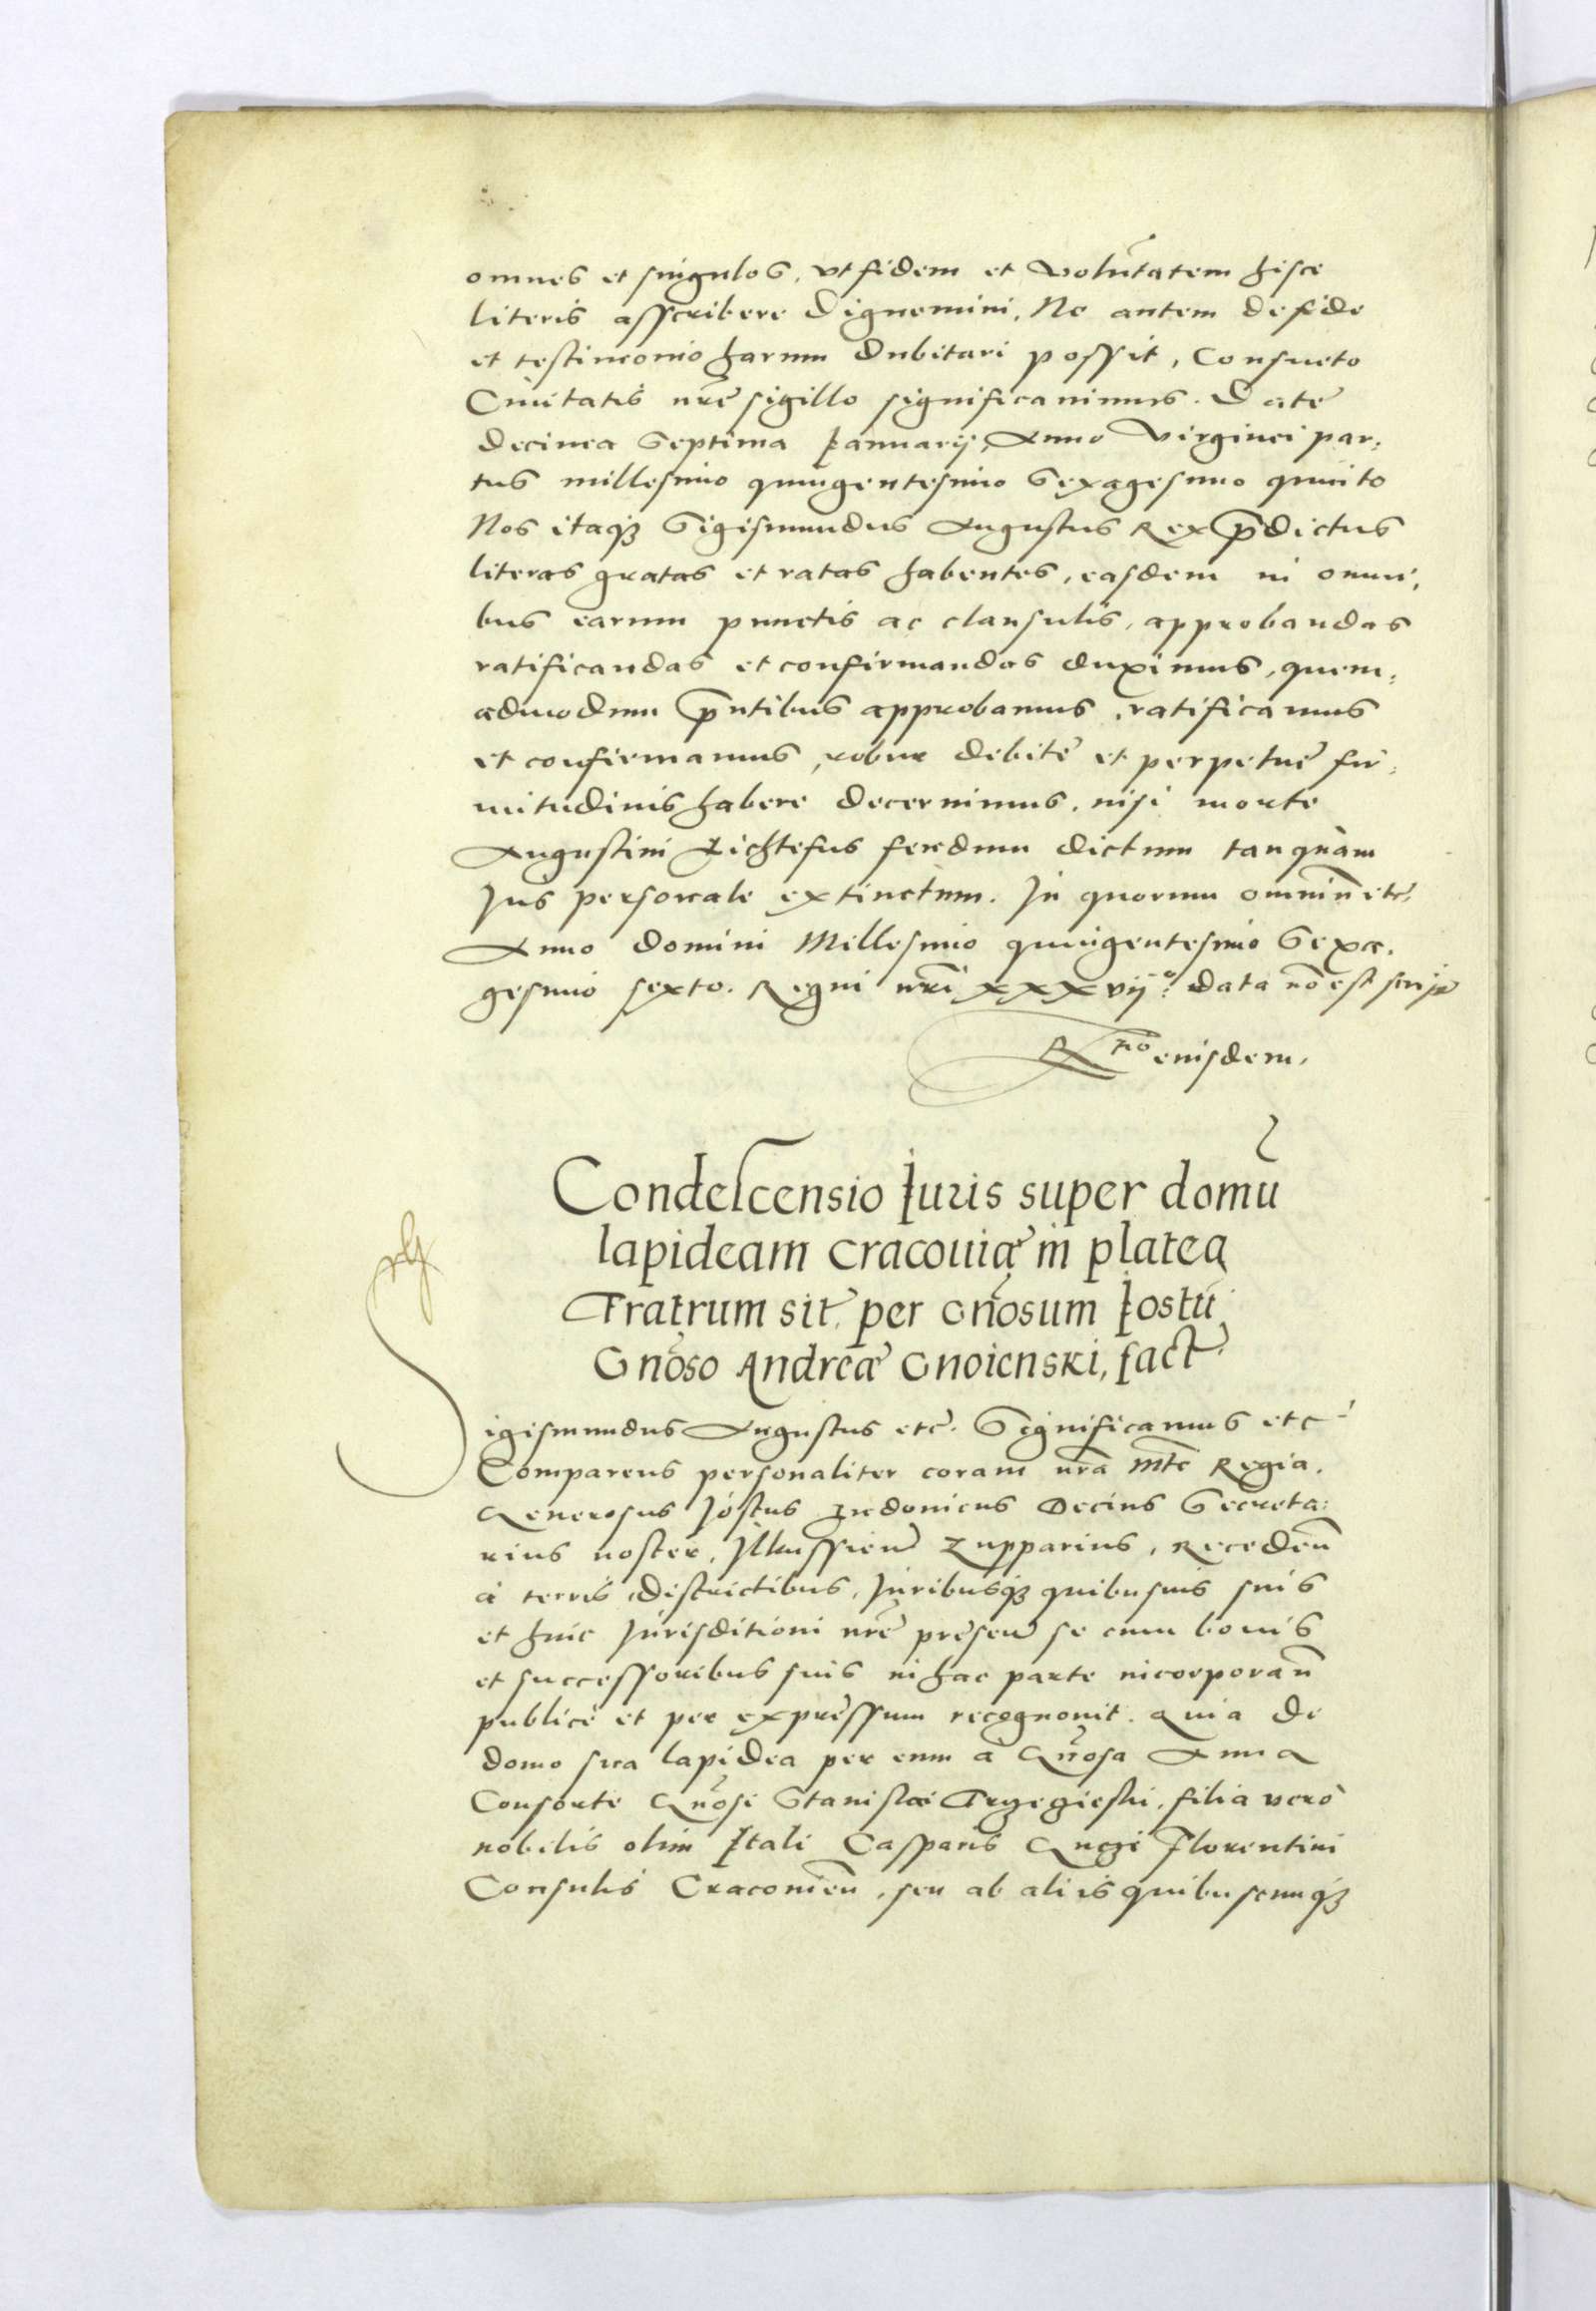 omnes et singulos, vt fidem et voluntatem hisce
literis asscribere dignemini. Ne autem de fide
et testimonio harum dubitari possit, Consueto
Ciuitatis nrẽ sigillo significauimus. Datę
decima Septima Ianuarij, Anno Virginei par:
tus millesimo quingentesimo Sexagesimo quinto
Nos itaqꝫ Sigismundus Augustus Rex p̃dictus
literas gratas et ratas habentes, easdem in omni,
bus earum punctis ac clausulis, approbandas
ratificandas et confirmandas duximus, quem:
admodum p̃ntibus approbamus, ratificamus
et confirmamus, robur debitę et perpetuę fir:
mitudinis habere decernimus, nisi morte
Augustini feudum dictum tanquàm
Jus personale extinctum. In quorum omniũ etc.
Anno domini Millesimo quingentesimo Sexa.
gesimo sexto. Regni nrĩ xxxvijº. data nõ est
Rtio eiusdem.
Condescensio Iuris super domũ
lapideam Cracouiæ in platea
Fratrum sit. per Gñosum Iostũ
Gñoso Andreæ Gnoienski, fact.
Sigismundus Augustus etc. Significamus etc
Comparens personaliter coram nrã Mte Regia.
Generosus Jostus Ludouicus Decius Secreta:
rius noster, Zupparius, Recedeñ
à terris, districtibus, Juribusqꝫ quibusuis suis
et huic Jurisditioni nrẽ preseñ se cum bonis
et successoribus suis in hac parte incorporañ
publicè et per expressum recognouit. Quia de
domo sua lapidea per eum à Gñosa Anna
Consorte Gñosi Stanislai, filia verò
nobilis olim Itali Casparis Gucgi Florentini
Consulis Cracouieñ, seu ab aliis quibuscumqꝫ